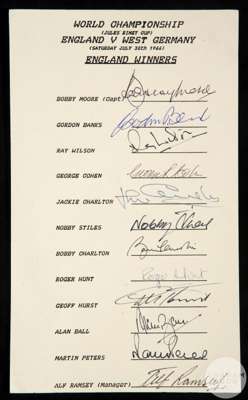 WORLD CHAMPIONSHIP
(JULES RIMET CUP)
ENGLAND V WEST GERMANY
(SATURDAY JULY 30th 1966)
ENGLAND WINNERS
BOBBY MOORE (Capt)
GORDON BANKS
RAY WILSON Ray Wilson
GEORGE COHEN
JACKIE CHARLTON
NOBBY STILES Nobby Stiles
BOBBY CHARLTON
ROGER HUNT Roger Hunt
GEOFF HURST
ALAN BALL
MARTIN PETERS
ALF RAMSEY (Manager) Alf Ramsey